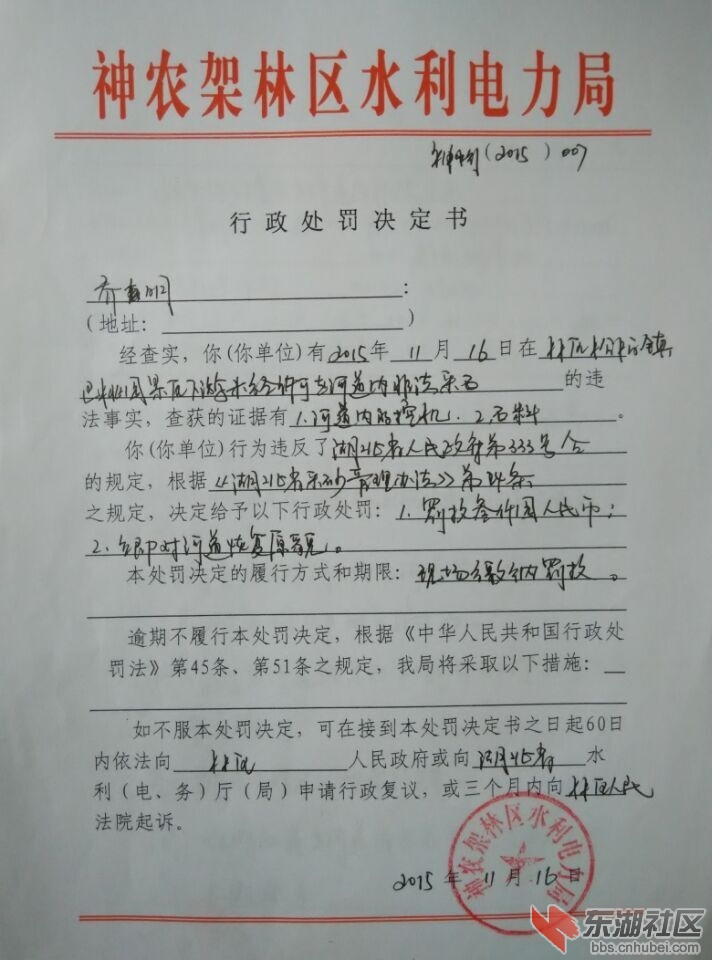 神农架林区水利电力局
(2015)007
行政处罚决定书
乔 明:
(地址: )
经查实,你(你单位)有2015年11月16日在林区松柏镇
风景区下游未经许可在河道内非法采石的违
法事实,查获的证据有1.河道内的挖机.2.石料。
你(你单位)行为违反了湖北省人民政府第333号令
的规定,根据《湖北省采砂管理办法》第 条
之规定,决定给予以下行政处罚:1.罚款叁仟圆人民币;
2.立即对河道恢复原貌。
本处罚决定的履行方式和期限:现场缴纳罚款。
逾期不履行本处罚决定,根据《中华人民共和国行政处
罚法》第45条、第51条之规定,我局将采取以下措施:
如不服本处罚决定,可在接到本处罚决定书之日起60日
内依法向 林区 人民政府或向 湖北省 水
利(电、务)厅(局)申请行政复议,或三个月内向林区人民
法院起诉。
神农架林区水利电力局
2015年11月16日
东湖社区
bbs.cnhubei.com